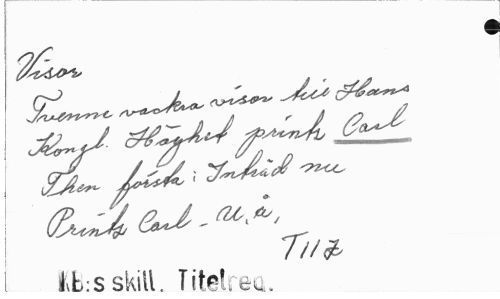 Visor
Tvenne vackra visor till Hans
Kongl. Höghet printz Carl
Then första: Inträd nu
Printz Carl - U. å,
T 11 z
KB:s skill. Titelreg.